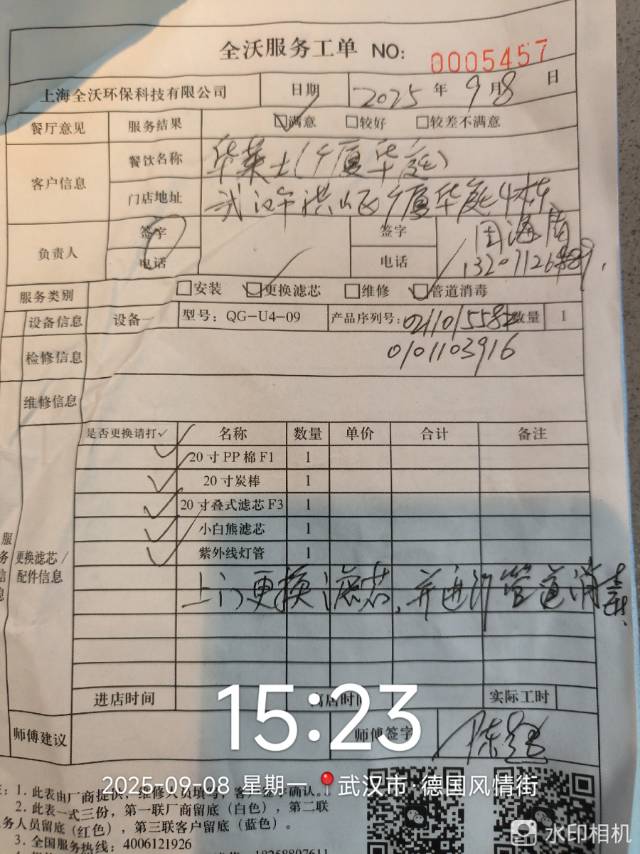 全沃服务工单 NO: 0005457
上海全沃环保科技有限公司 日期 2025年9月8日
餐厅意见 服务结果 ☑满意 □较好 □较差不满意
客户信息 餐饮名称 华莱士(广厦华庭)
门店地址 武汉市洪山区广厦华庭4栋
负责人 签字 签字
电话 电话
服务类别 □安装 ☑更换滤芯 □维修 ☑管道消毒
设备信息 设备一 型号: QG-U4-09 产品序列号: 数量 1
0101103916
检修信息
维修信息
是否更换请打✓ 名称 数量 单价 合计 备注
✓ 20寸PP棉F1 1
✓ 20寸炭棒 1
✓ 20寸叠式滤芯F3 1
✓ 小白熊滤芯 1
✓ 紫外线灯管 1
更换滤芯/
配件信息
上门更换滤芯,并进行管道消毒
进店时间 实际工时
15:23
师傅建议 师傅签字
2025-09-08 星期一 武汉市·德国风情街
2. 此表一式三份,第一联厂商留底(白色),第二联
务人员留底(红色),第三联客户留底(蓝色)。
3. 全国服务热线: 4006121926
水印相机